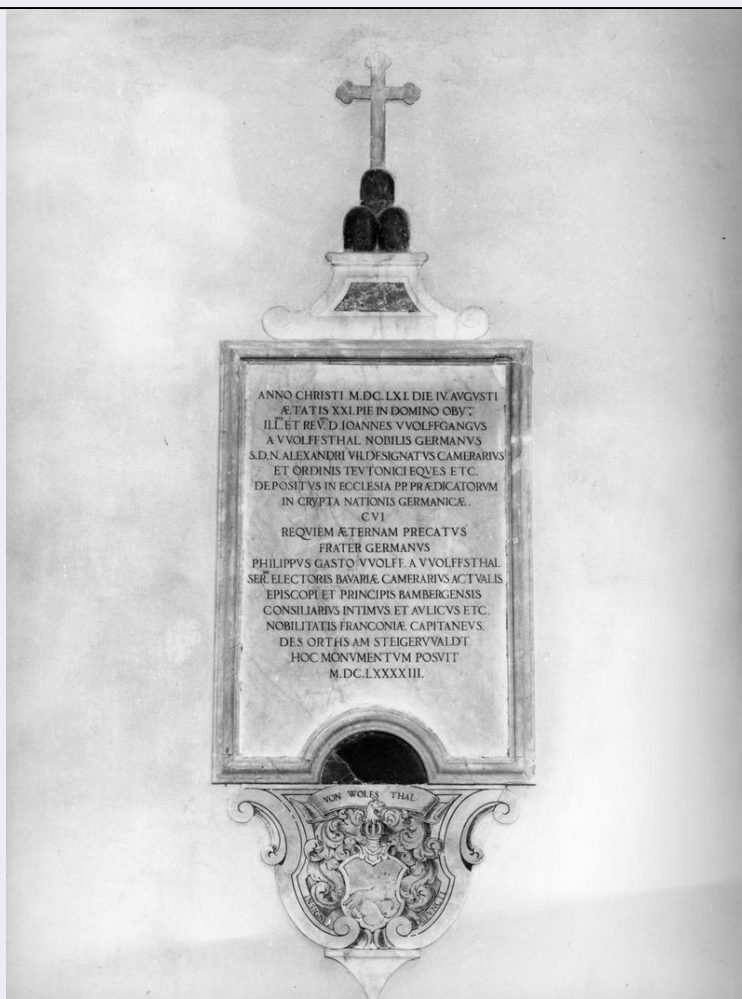 ANNO CHRISTI M.DC.LXI. DIE IV. AVGVSTI
ÆTATIS XXI. PIE IN DOMINO OBYT:
ILL.ᴹᵁˢ ET REV.ᴹᵁˢ D. IOANNES VVOLFFGANGVS
A VVOLFFSTHAL NOBILIS GERMANVS
S.D.N. ALEXANDRI VII. DESIGNATVS CAMERARIVS
ET ORDINIS TEVTONICI EQVES ETC.
DEPOSITVS IN ECCLESIA P.P. PRÆDICATORVM
IN CRYPTA NATIONIS GERMANICÆ.
CVI
REQVIEM ÆTERNAM PRECATVS
FRATER GERMANVS
PHILIPPVS GASTO VVOLFF. A VVOLFFSTHAL
SER.ᴹᴵ ELECTORIS BAVARIÆ CAMERARIVS ACTVALIS
EPISCOPI ET PRINCIPIS BAMBERGENSIS
CONSILIARIVS INTIMVS ET AVLICVS ETC.
NOBILITATIS FRANCONIÆ CAPITANEVS.
DES ORTHS AM STEIGERVVALDT
HOC MONVMENTVM POSVIT
M.DC.LXXXXIII.
VON WOLFS THAL
INSIGNIA
DEFVNCTI